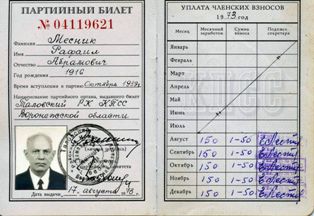 ПАРТИЙНЫЙ БИЛЕТ
№ 04119621
Фамилия Месник
Имя Рафаил
Отчество Абрамович
Год рождения 1916
Время вступления в партию Октябрь 1939г.
Наименование партийного органа, выдавшего билет
Таловский РК КПСС
Воронежской области
Дата выдачи 17 августа 1973.
УПЛАТА ЧЛЕНСКИХ ВЗНОСОВ
1973 год
Месяц
Месячный заработок
Членский взнос
Подпись секретаря
Январь
Февраль
Март
Апрель
Май
Июнь
Июль
Август 150 1-50
Сентябрь 150 1-50
Октябрь 150 1-50
Ноябрь 150 1-50
Декабрь 150 1-50